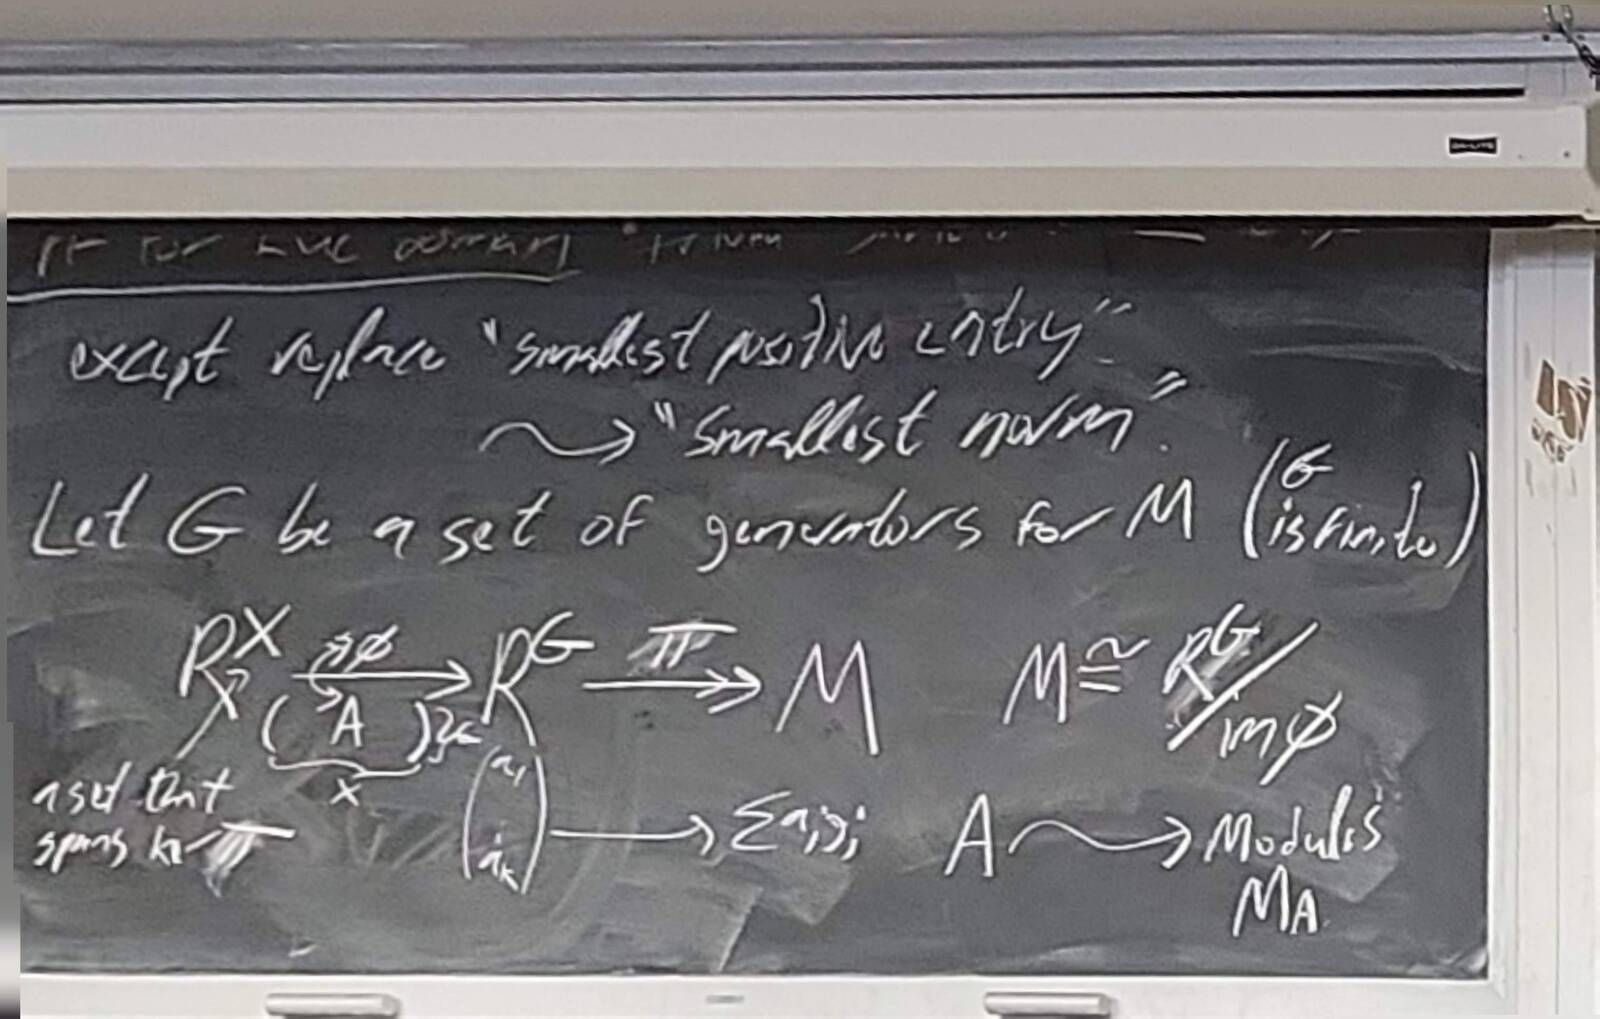 Pf for Euc domain
except replace "smallest positive entry"
⇝ "smallest norm".
Let G be a set of generators for M (G is finite)
R^X →ϕ R^G ↠π M M ≅ R^G / im ϕ
( A )}k
x
a set that
spans ker π
(a₁ ⋮ aₖ) ⟶ Σaᵢgᵢ A ⇝ Modules
M_A
DA-LITE